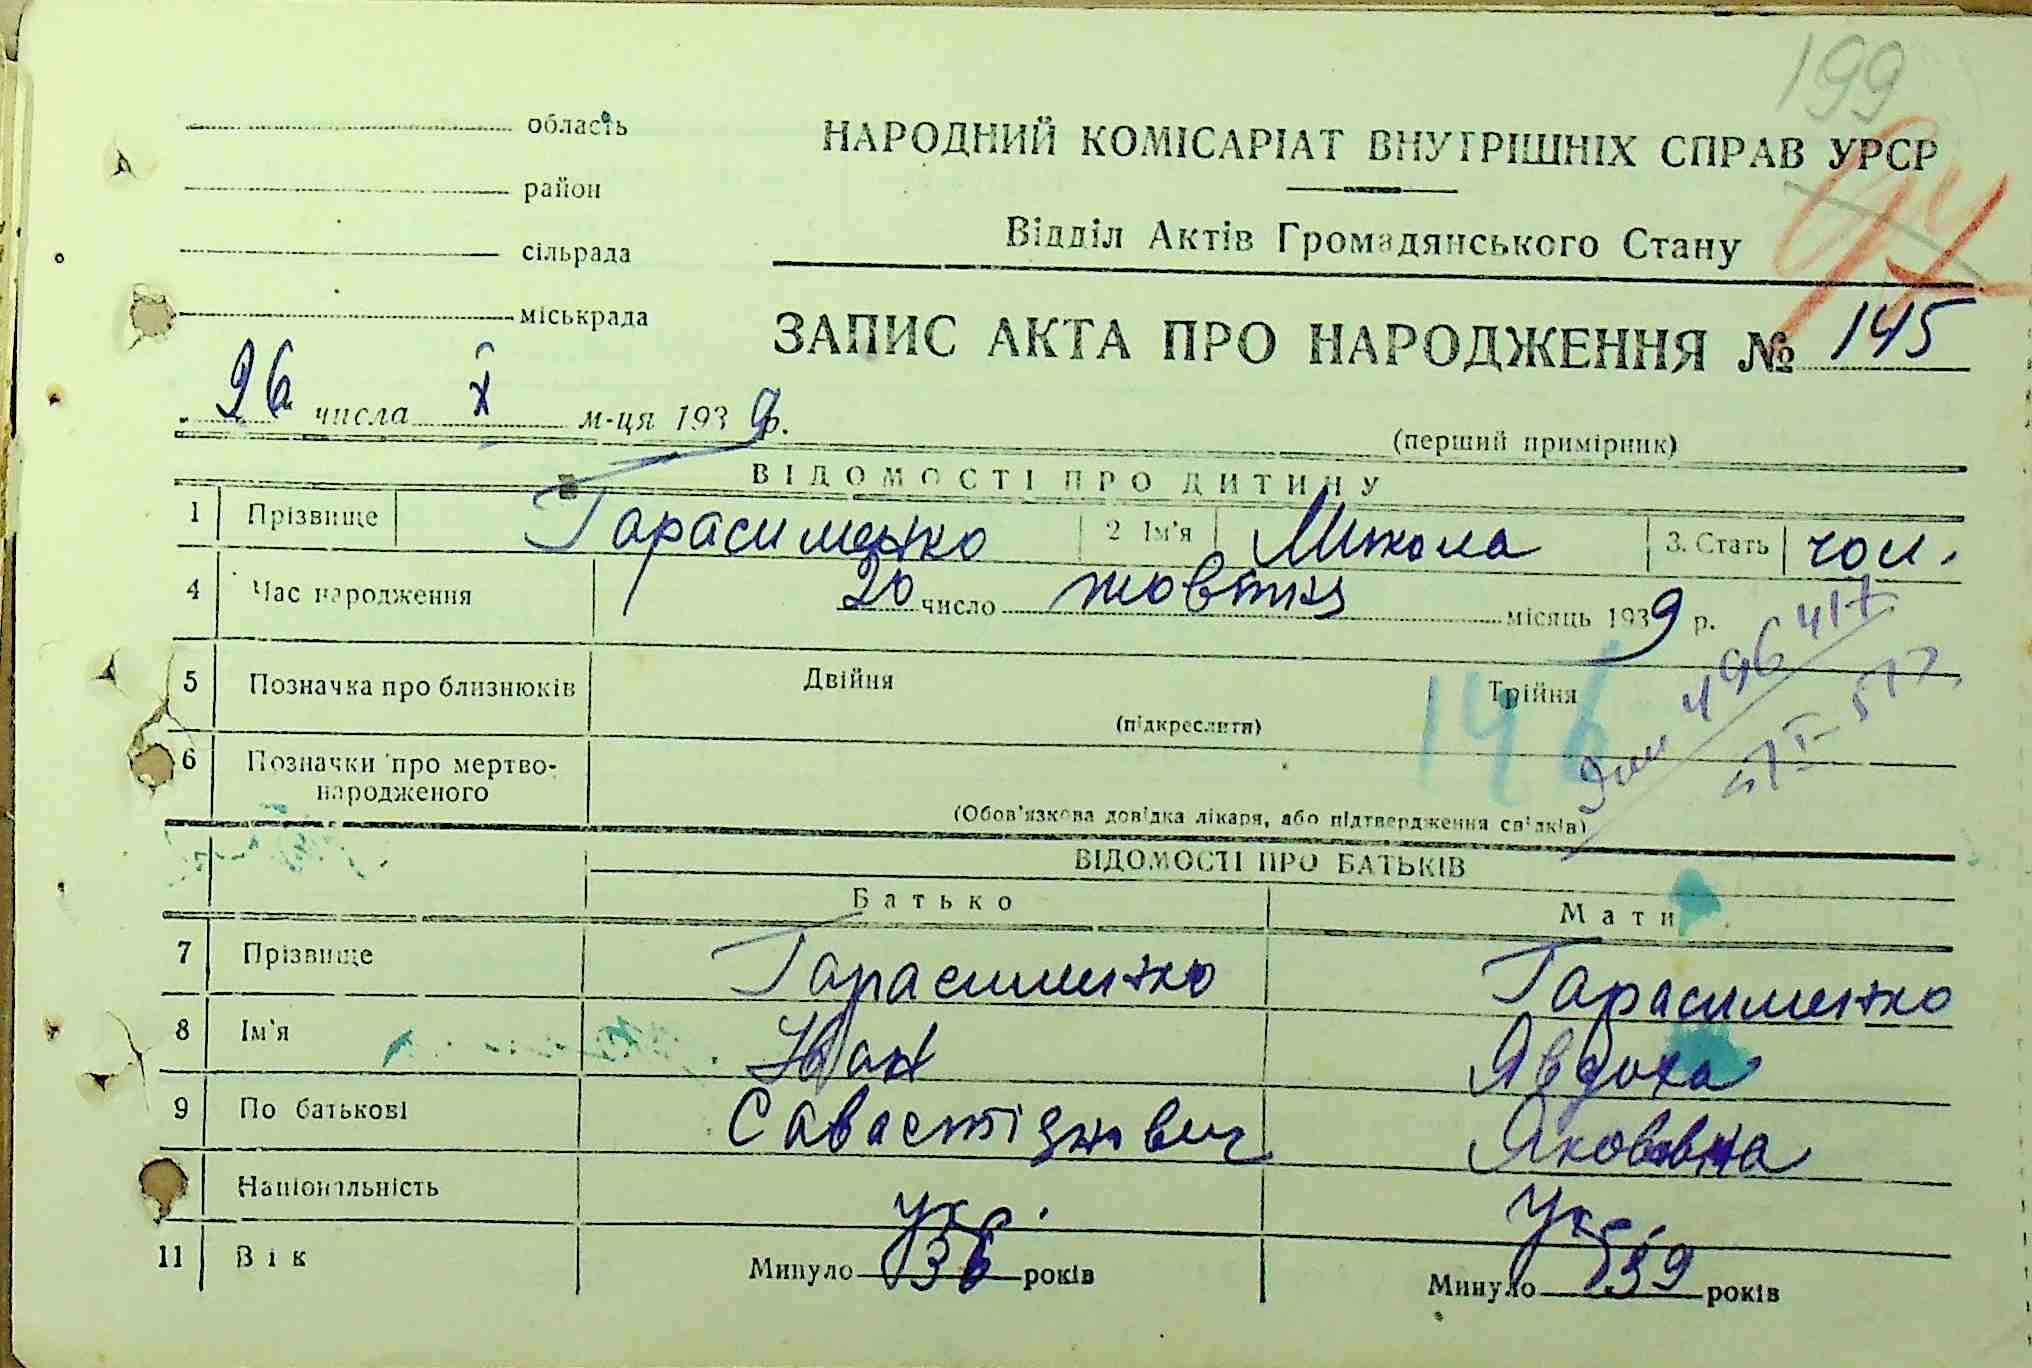 199
94
область
район
сільрада
міськрада
НАРОДНИЙ КОМІСАРІАТ ВНУТРІШНІХ СПРАВ УРСР
Відділ Актів Громадянського Стану
ЗАПИС АКТА ПРО НАРОДЖЕННЯ № 145
26 числа X м-ця 1939 р.
(перший примірник)
ВІДОМОСТІ ПРО ДИТИНУ
1 Прізвище Гарасименко 2 Ім'я Микола 3. Стать чол.
4 Час народження 20 число жовтня місяць 1939 р.
5 Позначка про близнюків Двійня Трійня
(підкреслити)
146
6 Позначки про мертво-
народженого
(Обов'язкова довідка лікаря, або підтвердження свідків)
ВІДОМОСТІ ПРО БАТЬКІВ
Батько Мати
7 Прізвище Гарасименко Гарасименко
8 Ім'я Іван Явдоха
9 По батькові Савастіянович Яковівна
Національність укр. укр.
11 Вік Минуло 36 років Минуло 39 років